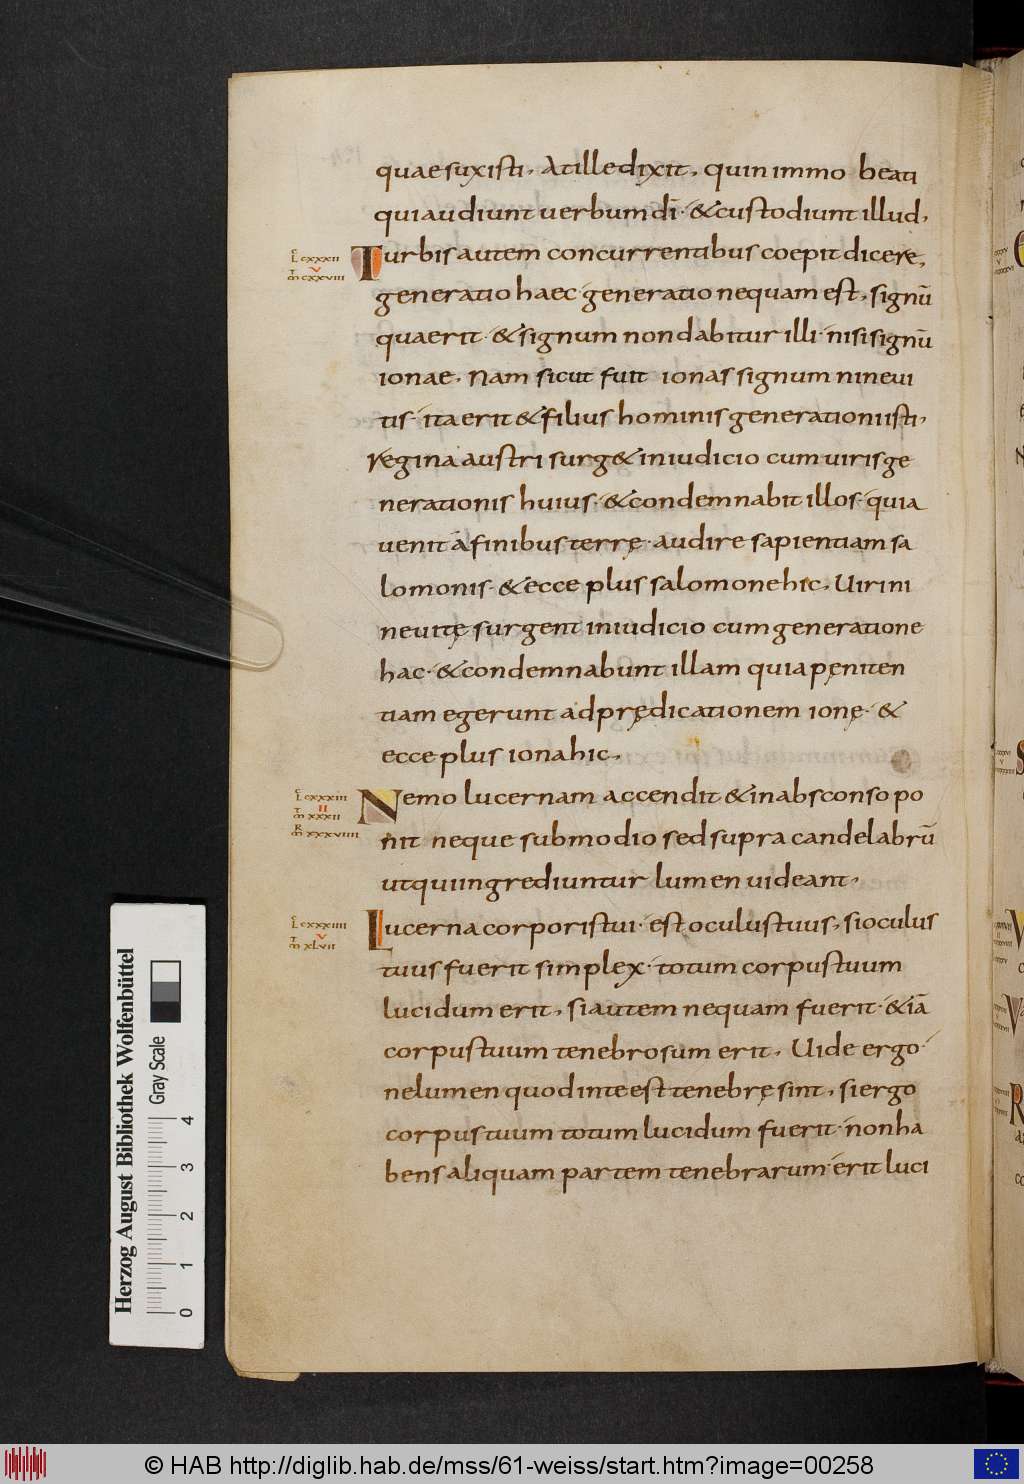 quae suxisti. At ille dixit. quin immo beati
qui audiunt uerbum dī. & custodiunt illud.
L CXXXII
V
M CXXVIII
Turbis autem concurrentibus coepit dicere.
generatio haec generatio nequam est. signū
quaerit. & signum non dabitur illi. nisi signū
ionae. Nam sicut fuit ionas signum nineui
tis. ita erit & filius hominis generationi isti.
Regina austri surg& in iudicio cum uiris ge
nerationis huius. & condemnabit illos. quia
uenit a finibus terrę. audire sapientiam sa
lomonis. & ecce plus salomone hic. Uiri ni
neuitę surgent in iudicio cum generatione
hac. & condemnabunt illam quia pęniten
tiam egerunt ad prędicationem ionę. &
ecce plus iona hic.
L CXXXIII
II
M XXXII
R
M XXXVIIII
Nemo lucernam accendit & in absconso po
nit neque sub modio sed supra candelabrū
ut qui ingrediuntur lumen uideant.
L CXXXIIII
V
M XLVII
Lucerna corporis tui. est oculus tuus. si oculus
tuus fuerit simplex. totum corpus tuum
lucidum erit. si autem nequam fuerit. &iā
corpus tuum tenebrosum erit. Uide ergo.
ne lumen quod in te est tenebrę sint. si ergo
corpus tuum totum lucidum fuerit. non ha
bens aliquam partem tenebrarum. erit luci
Herzog August Bibliothek Wolfenbüttel
Gray Scale
0 1 2 3 4
© HAB http://diglib.hab.de/mss/61-weiss/start.htm?image=00258